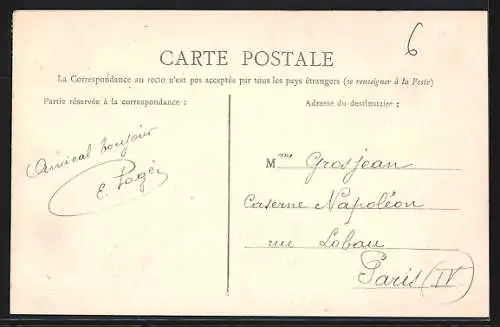 6
CARTE POSTALE
La Correspondance au recto n'est pas acceptée par tous les pays étrangers (se renseigner à la Poste)
Partie réservée à la correspondance :
Adresse du destinataire :
Amical bonjour
E.
Mme Grosjean
Caserne Napoléon
rue Lobau
Paris (IV)